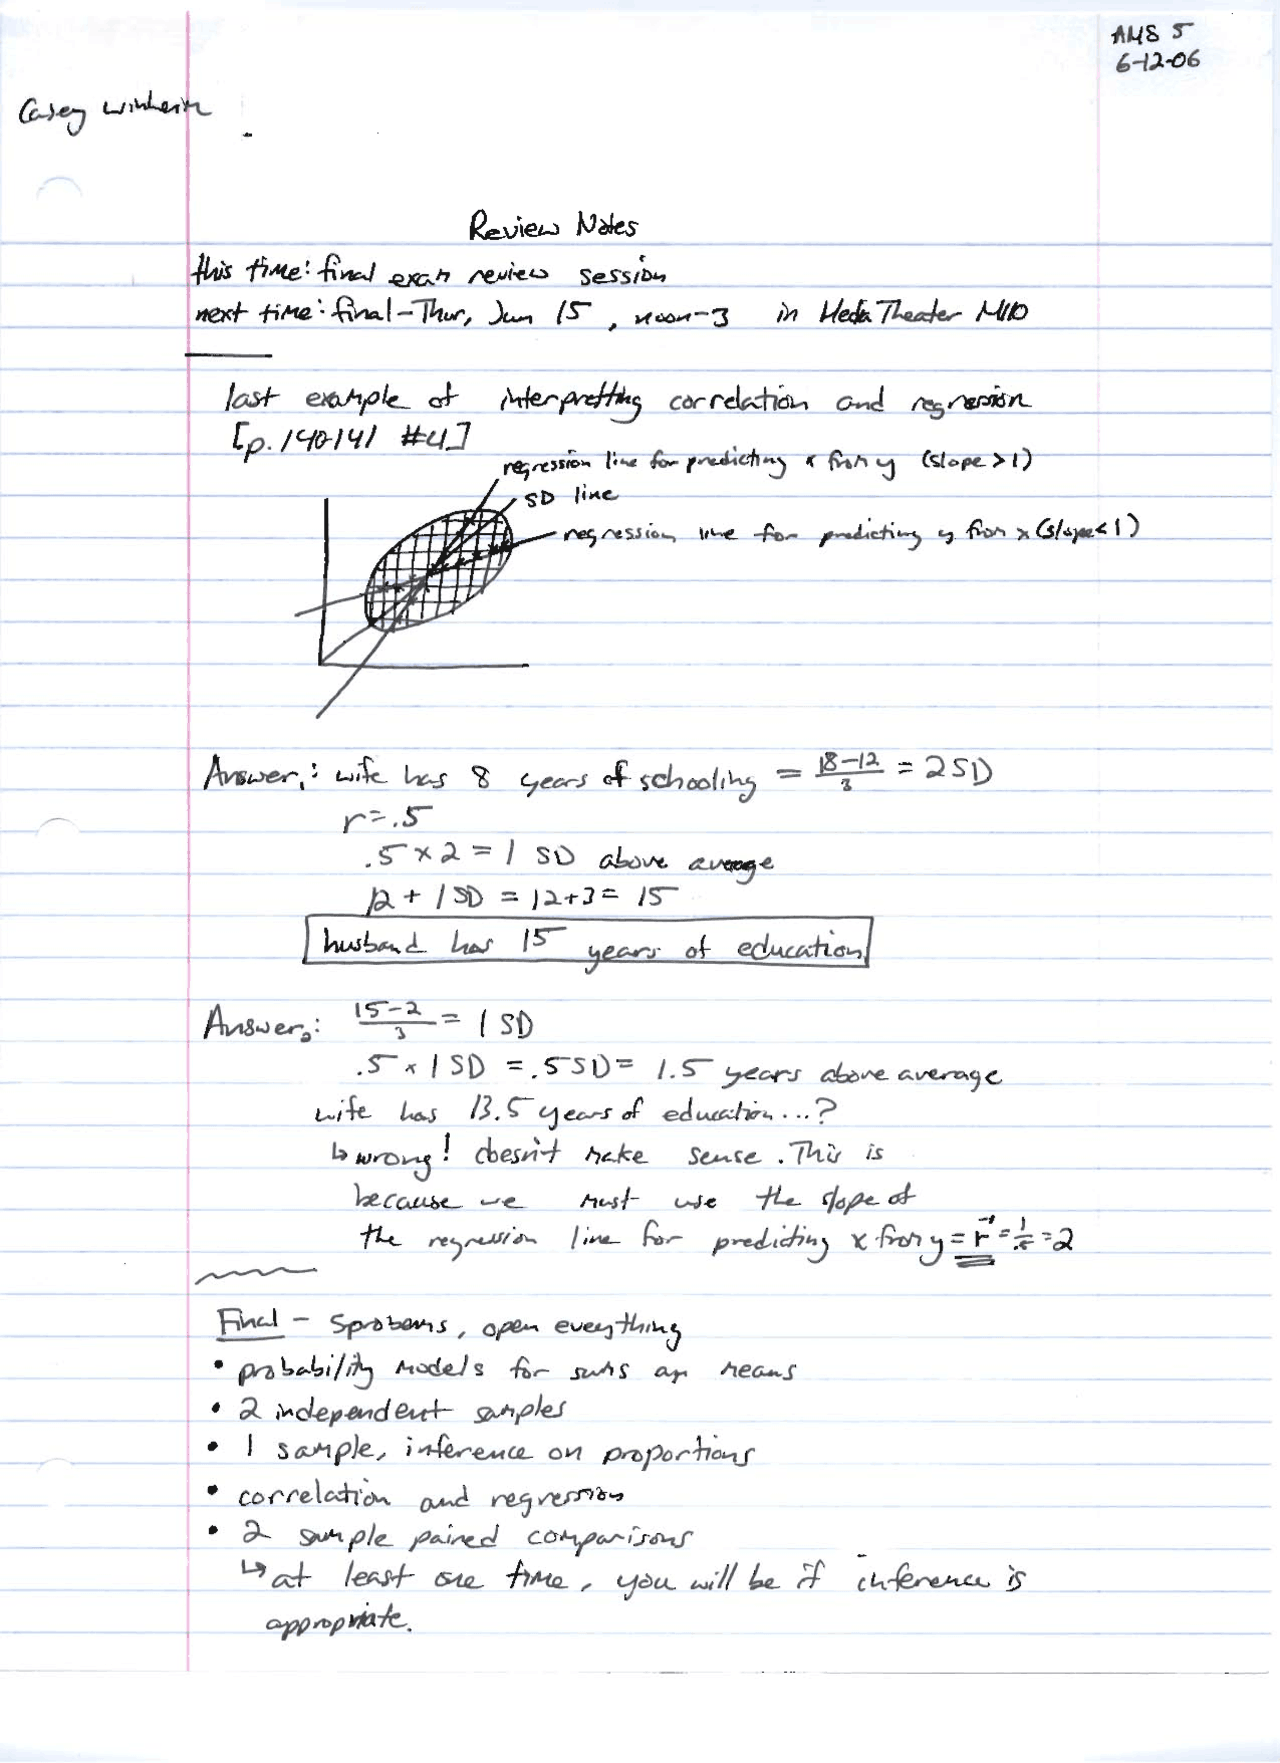 AMS 5
6-12-06
Casey
Review Notes
this time: final exam review session
next time: final - Thur, Jun 15, noon-3 in Media Theater M110
last example of interpretting correlation and regression
[p. 140-141 #4]
regression line for predicting x from y (slope > 1)
SD line
regression line for predicting y from x (slope < 1)
Answer1: wife has 8 years of schooling = 18-12/3 = 2SD
r = .5
.5 × 2 = 1 SD above average
12 + 1SD = 12+3 = 15
husband has 15 years of education
Answer2: 15-2/3 = 1 SD
.5 × 1 SD = .5 SD = 1.5 years above average
wife has 13.5 years of education...?
↳ wrong! doesn't make sense. This is
because we must use the slope of
the regression line for predicting x from y = r⁻¹ = 1/.5 = 2
Final - 5 probems, open everything
• probability models for sums an means
• 2 independent samples
• 1 sample, inference on proportions
• correlation and regression
• 2 sample paired comparisons
↳ at least one time, you will be if inference is
appropriate.